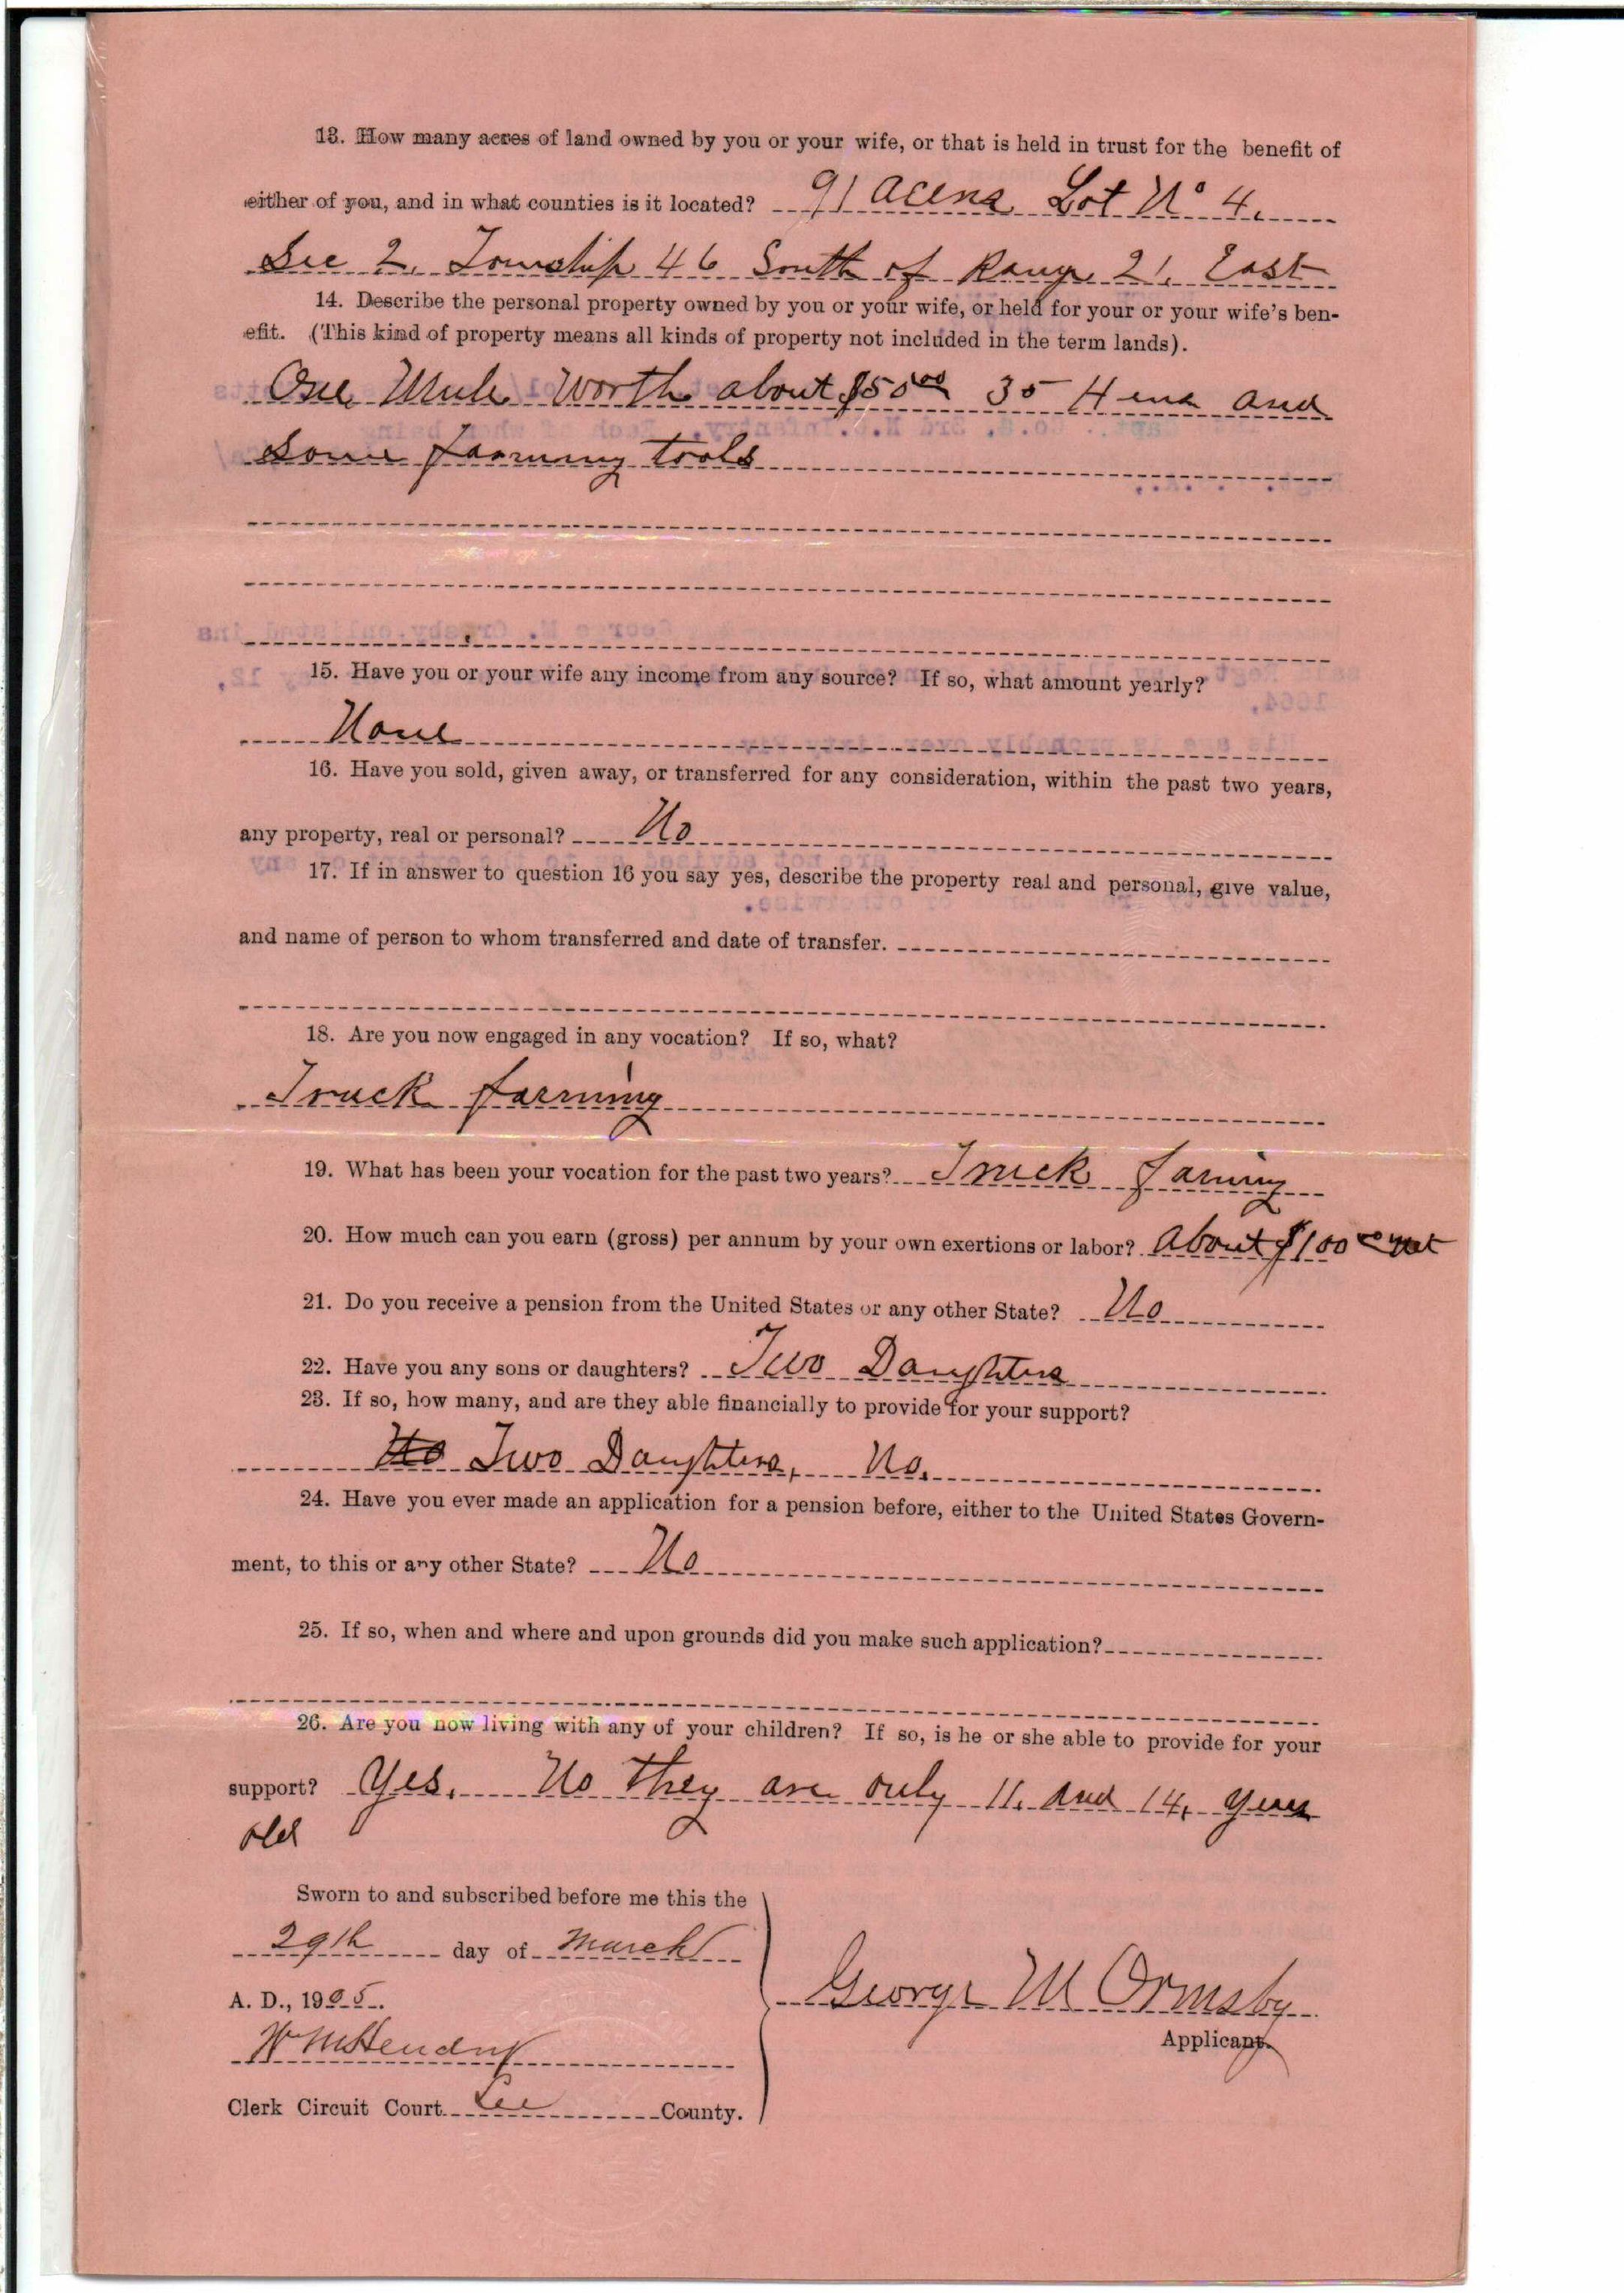 13. How many acres of land owned by you or your wife, or that is held in trust for the benefit of
either of you, and in what counties is it located? 91 acens Lot No 4.
Sec 2, Township 46 South of Range 21, East
14. Describe the personal property owned by you or your wife, or held for your or your wife's ben-
efit. (This kind of property means all kinds of property not included in the term lands).
One Mule Worth about $50 00 35 Hens and
some farming tools
15. Have you or your wife any income from any source? If so, what amount yearly?
None
16. Have you sold, given away, or transferred for any consideration, within the past two years,
any property, real or personal? No
17. If in answer to question 16 you say yes, describe the property real and personal, give value,
and name of person to whom transferred and date of transfer.
18. Are you now engaged in any vocation? If so, what?
Truck farming
19. What has been your vocation for the past two years? Truck farming
20. How much can you earn (gross) per annum by your own exertions or labor? about $100 00 net
21. Do you receive a pension from the United States or any other State? No
22. Have you any sons or daughters? Two Daughters
23. If so, how many, and are they able financially to provide for your support?
No Two Daughters, No.
24. Have you ever made an application for a pension before, either to the United States Govern-
ment, to this or any other State? No
25. If so, when and where and upon grounds did you make such application?
26. Are you now living with any of your children? If so, is he or she able to provide for your
support? Yes. No they are only 11, and 14, years
old
Sworn to and subscribed before me this the
29th day of March
A. D., 1905.
George M Ormsby
Applicant.
W M Hendry
Clerk Circuit Court Lee County.